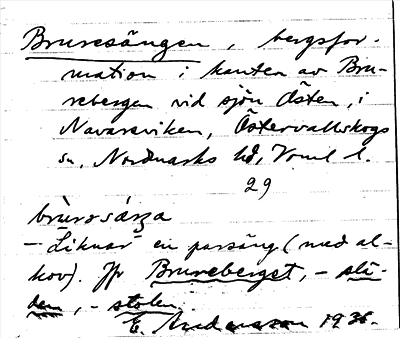 Bruresängen, bergsfor-
mation i kanten av Bru-
rebergen vid sjön Östen, i
Navarsviken, Östervallskogs
sn, Nordmarks hd, Verml. l.
29
brùrosáŋa
– Liknar en parsäng (med al-
kov). Jfr Brureberget, – slä-
den, – stolen.
E. Andersson 1936.